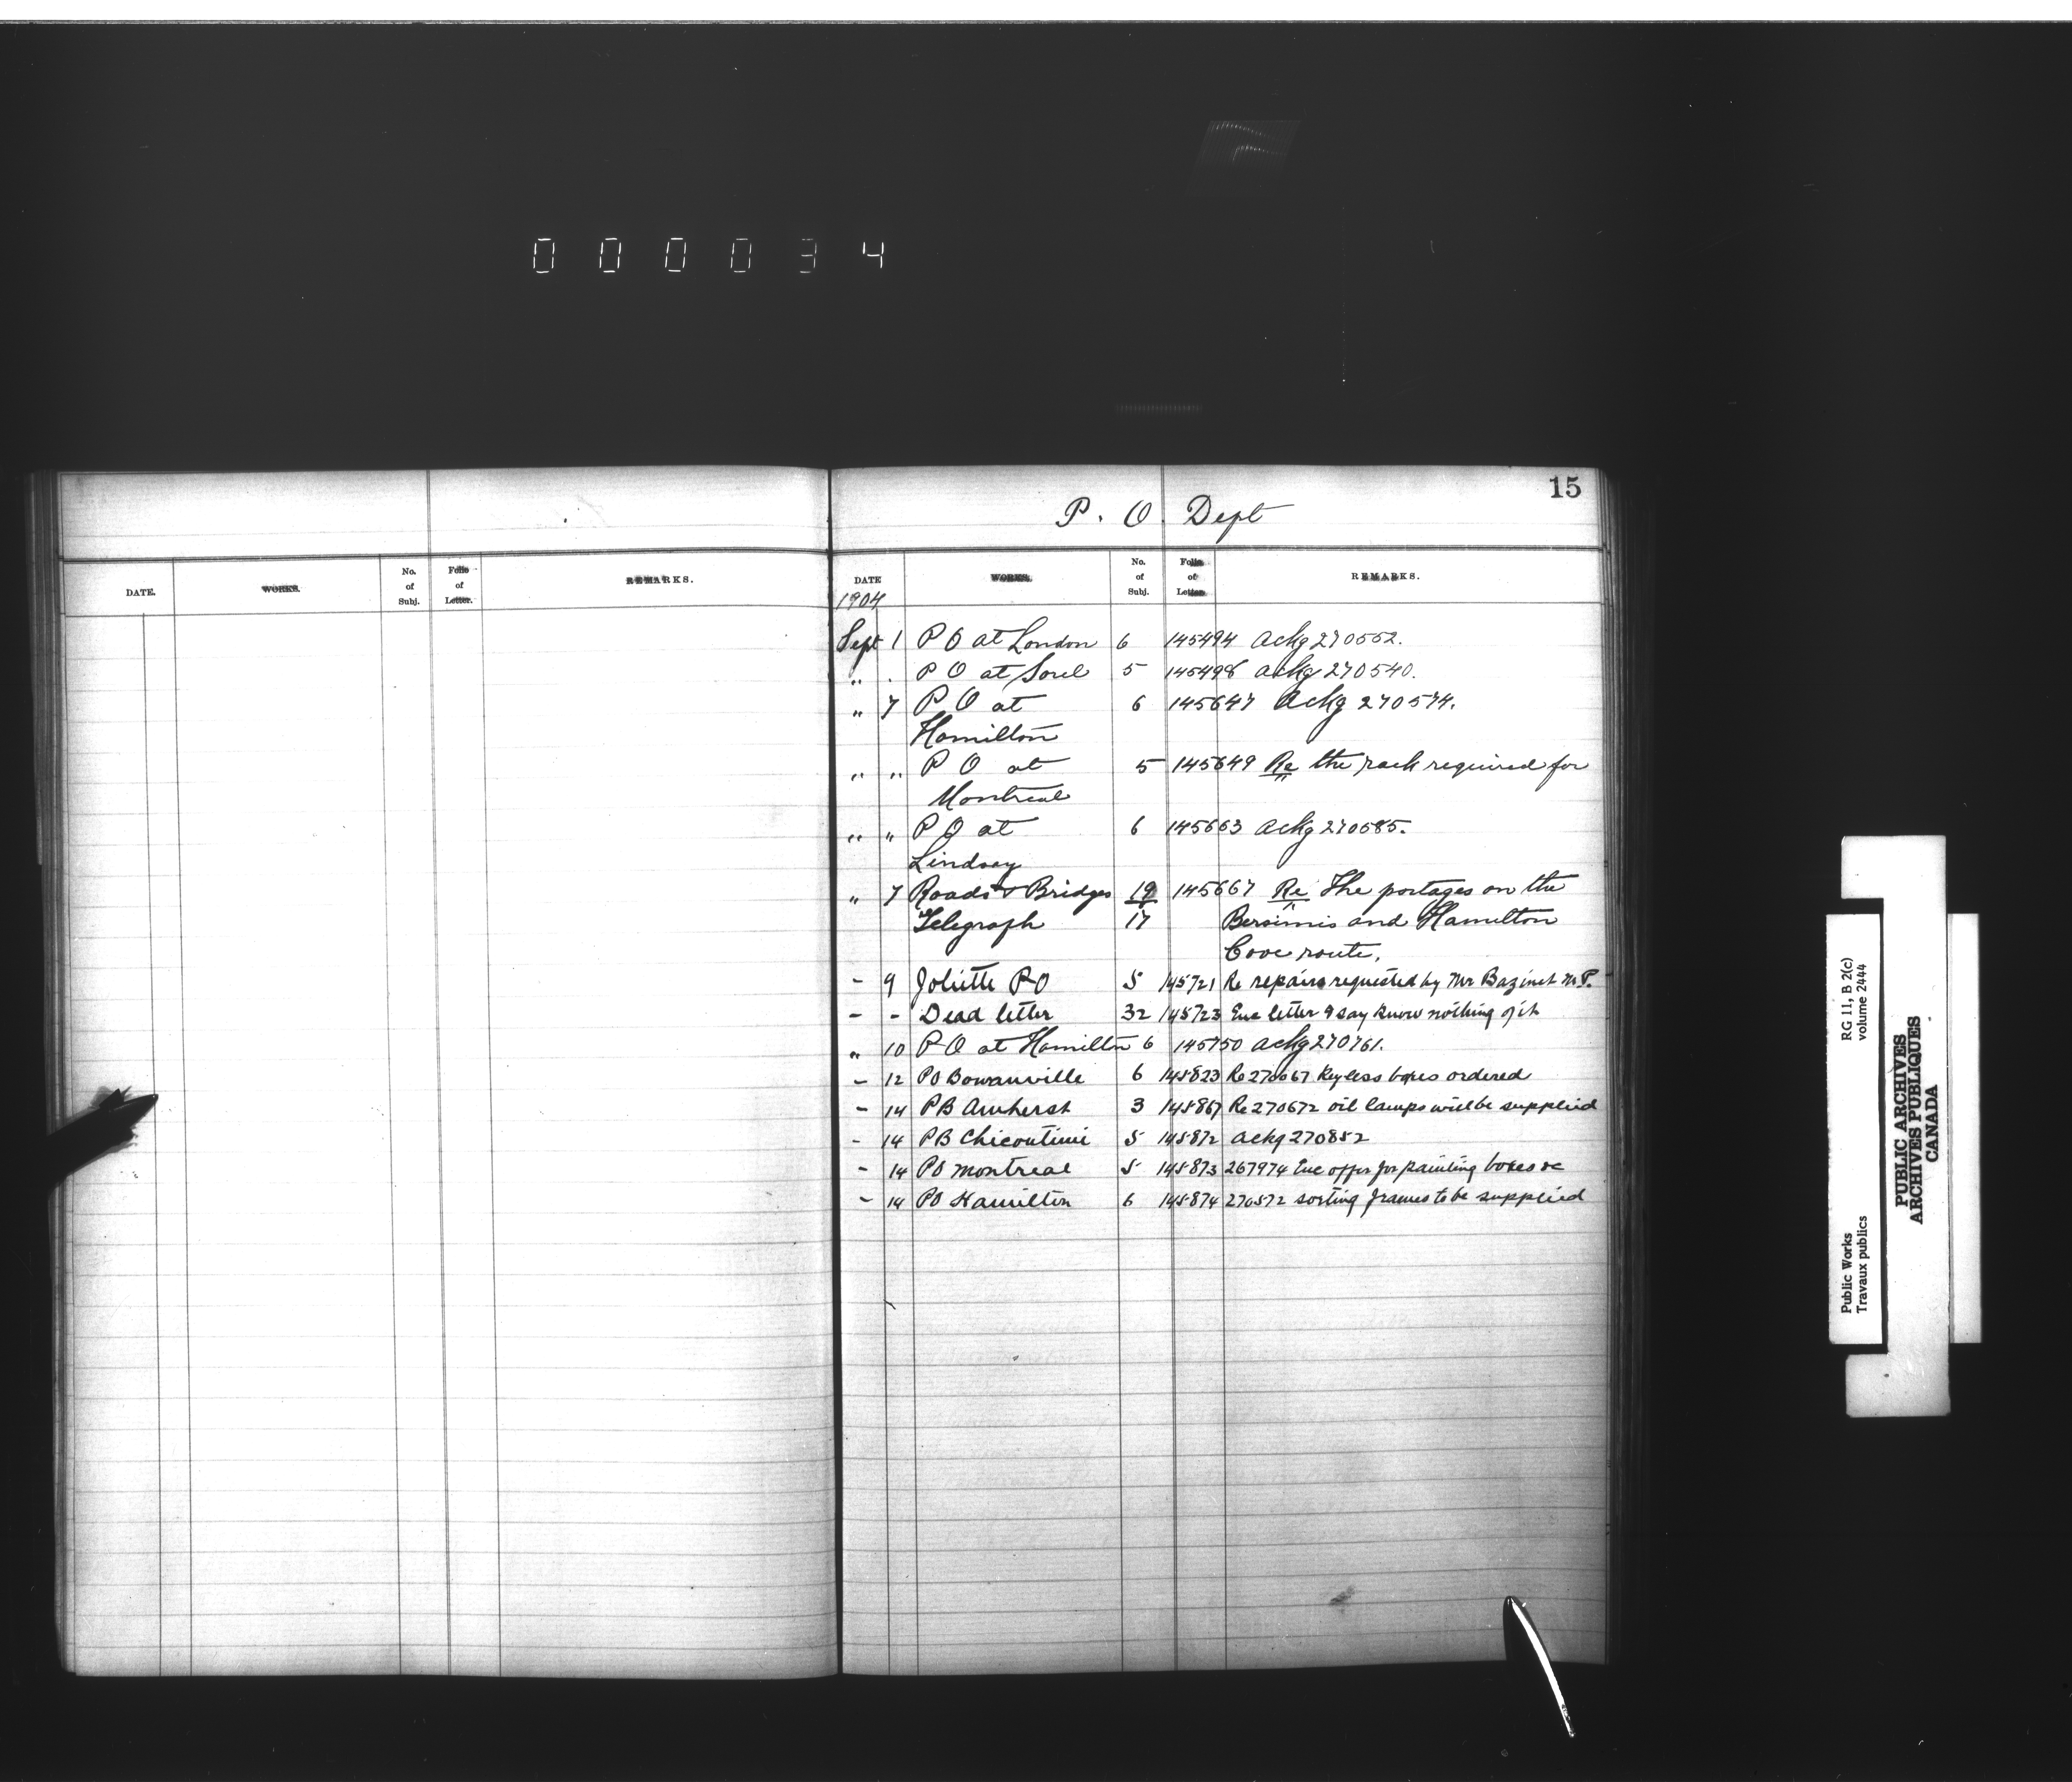 000034
15
P. O. Dept
DATE. WORKS. No. of Subj. Folio of Letter. REMARKS.
DATE WORKS. No. of Subj. Folio of Letter. REMARKS.
1904
Sept 1 P O at London 6 145494 Ackg 270552.
" . P O at Sorel 5 145498 ackg 270540.
" 7 P O at 6 145647 Ackg 270574.
Hamilton
" " P O at 5 145649 Re the rack required for
Montreal
" " P O at 6 145663 Ackg 270585.
Lindsay
" 7 Roads & Bridges 19 145667 Re The portages on the
Telegraph 17 Bersimis and Hamilton
Cove route.
- 9 Joliette PO 5 145721 Re repairs requested by Mr Bazinet M.P.
- - Dead letter 32 145723 Enc letter & say know nothing of it
" 10 P O at Hamilton 6 145750 Ackg 270761.
- 12 PO Bowanville 6 145823 Re 270667 Keyless boxes ordered
- 14 PB Amherst 3 145867 Re 270672 oil lamps will be supplied
- 14 PB Chicoutimi 5 145872 ackg 270852
- 14 PO Montreal 5 145873 267974 Enc offer for painting boxes &c
- 14 PO Hamilton 6 145874 270572 sorting frames to be supplied
Public Works RG 11, B 2(c)
Travaux publics volume 2444
PUBLIC ARCHIVES
ARCHIVES PUBLIQUES
CANADA